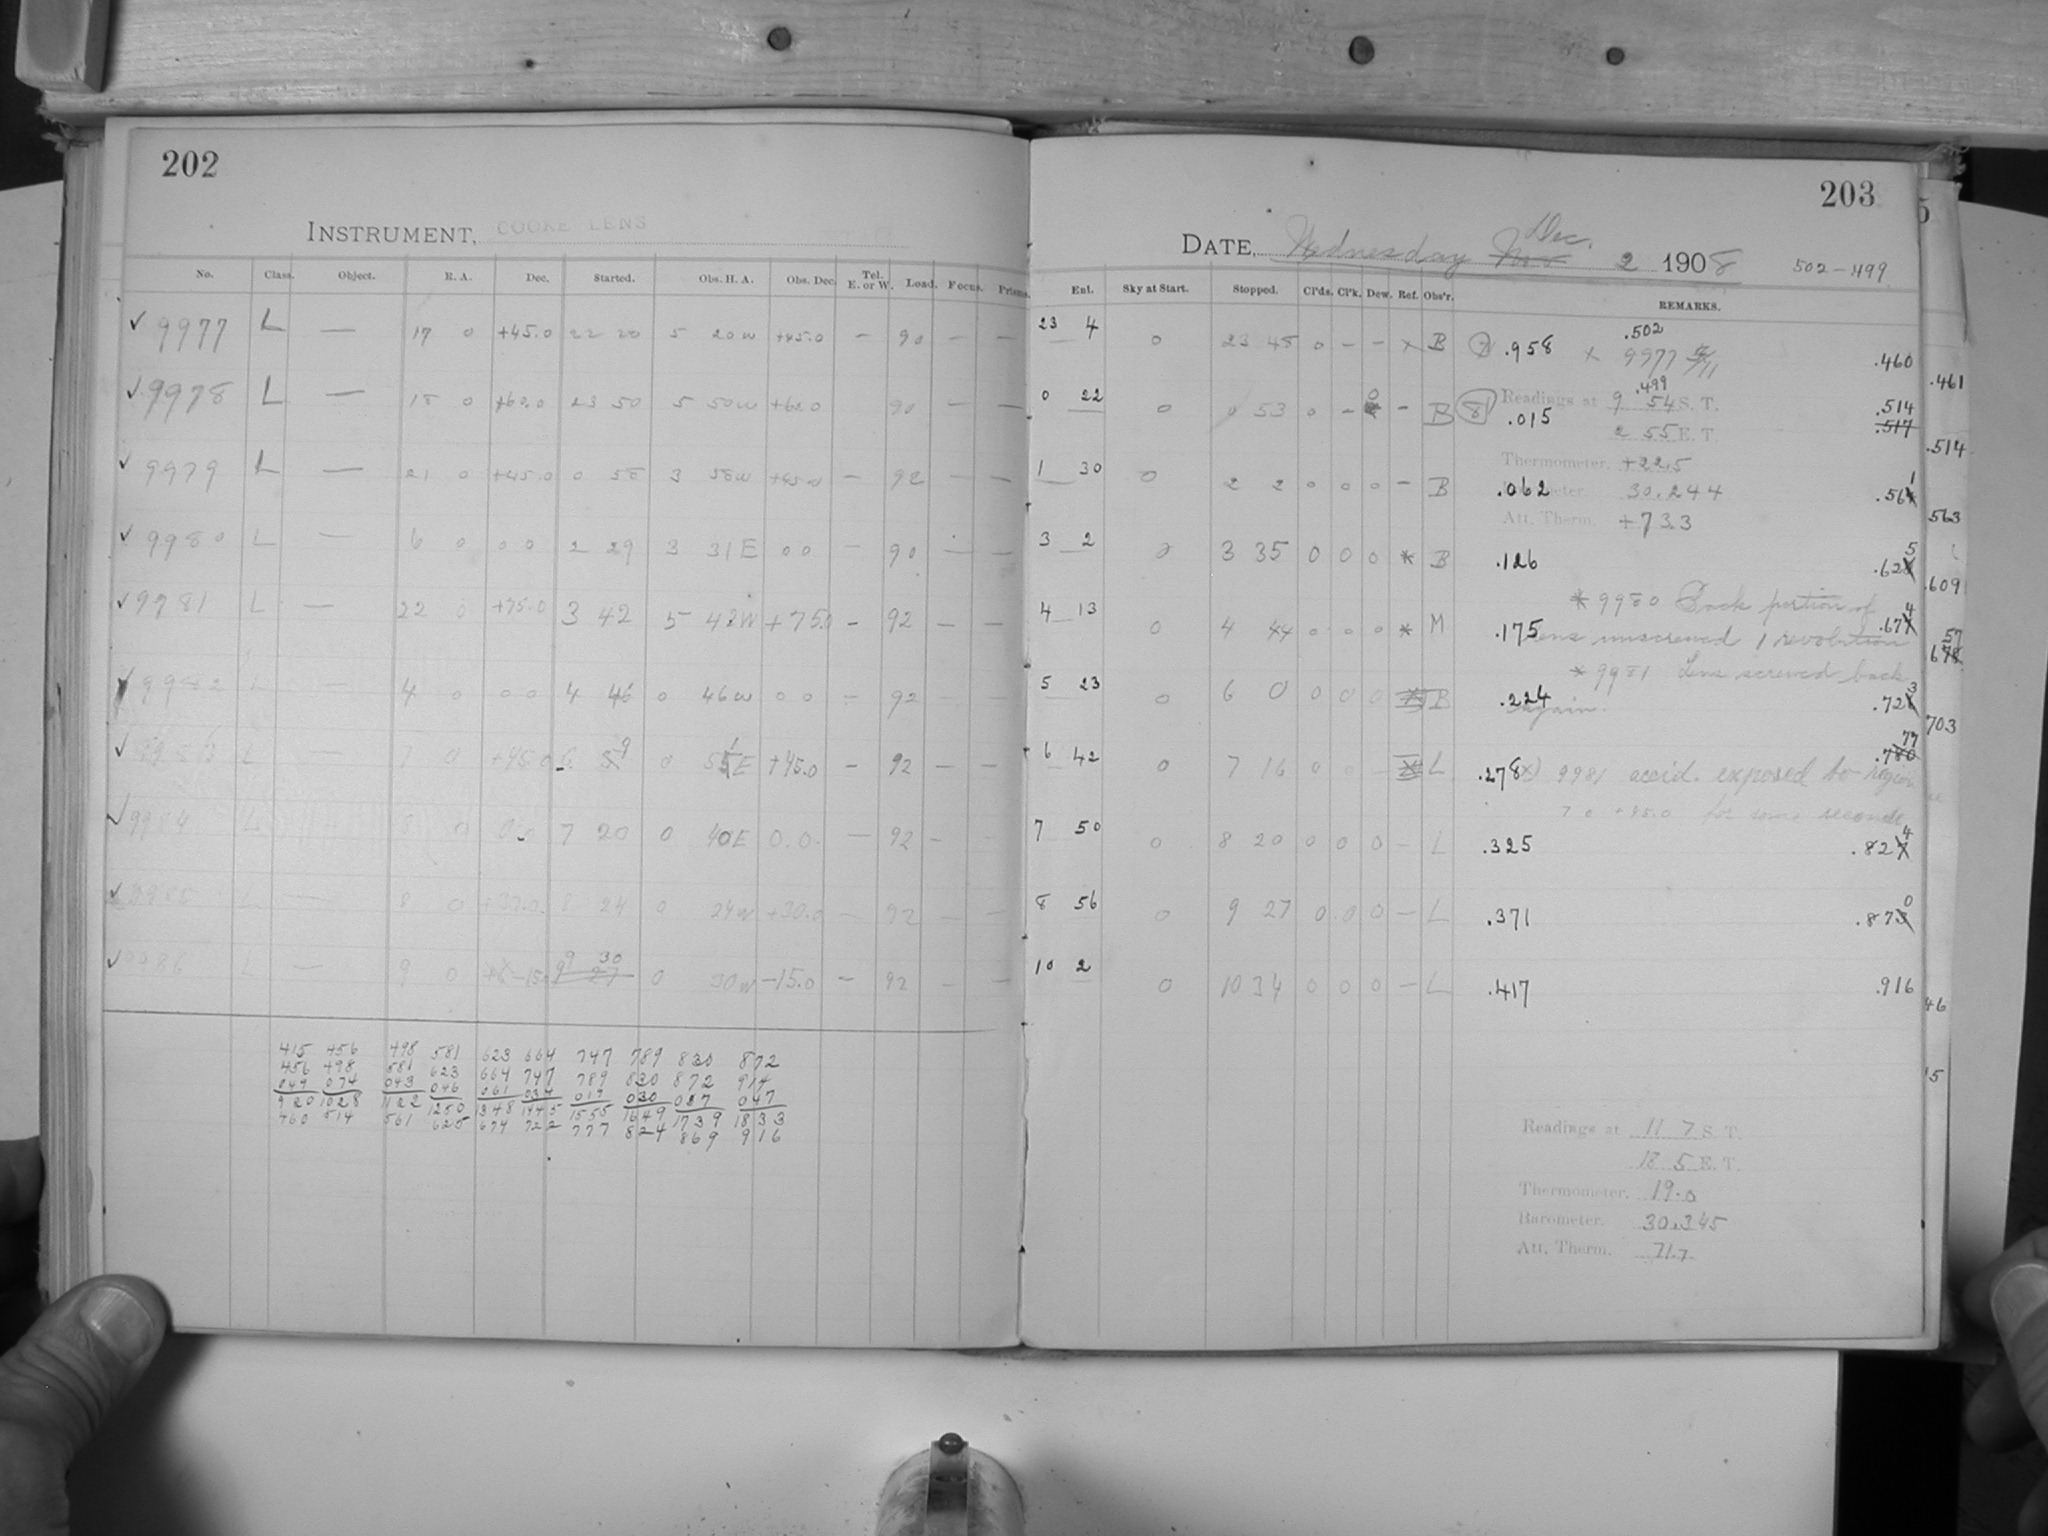 202
INSTRUMENT, COOKE LENS
No. Class. Object. R. A. Dec. Started. Obs. H. A. Obs. Dec. Tel. E. or W. Load. Focus. Prisms.
✓ 9977 L — 17 0 +45.0 22 20 5 20W +45.0 — 90 — —
✓ 9978 L — 18 0 +60.0 23 50 5 50W +60.0 90 — —
✓ 9979 L — 21 0 +45.0 0 58 3 58W +45.0 — 92 — —
✓ 9980 L — 6 0 0 0 2 29 3 31E 0 0 — 90 — —
✓ 9981 L — 22 0 +75.0 3 42 5 42W +75.0 — 92 — —
✓ 9982 L — 4 0 0 0 4 46 0 46W 0 0 — 92 — —
✓ 9983 L — 7 0 +45.0 6 0 51E +45.0 — 92 — —
✓ 9984 L 8 0 0.0 7 20 0 40E 0.0. — 92 —
✓ 9985 L — 8 0 +30.0 8 24 0 24W +30.0 — 92 — —
✓ 9986 L — 9 0 -15.0 9 30 0 30W -15.0 — 92 — —
415 456 498 581 623 664 747 789 830 872
456 498 581 623 664 747 789 830 872 914
049 074 043 046 061 034 019 030 037 047
920 1028 1122 1250 1348 1445 1555 1649 1739 1833
460 514 561 625 674 722 777 824 869 916
203
DATE, Wednesday Dec. 2 1908 502-499
Ent. Sky at Start. Stopped. Cl'ds. Cl'k. Dew. Ref. Obs'r. REMARKS.
23 4 0 23 45 0 — — × B .958 × 9977 .502 .460
0 22 0 0 53 0 — 0 — B 8 .015 .514
Readings at 9 54 S. T. .499
2 55 E. T.
Thermometer. +22.5
1 30 0 2 2 0 0 0 — B .062 .561
30.244
Att. Therm. +73.3
3 2 0 3 35 0 0 0 * B .126 .625
* 9980 Back portion of
4 13 0 4 44 0 0 0 * M .175 .674
lens unscrewed 1 revolution
* 9981 Lens screwed back
5 23 0 6 0 0 0 0 B .224 .723
again.
6 42 0 7 16 0 0 — L .278 .777
9981 accid. exposed to region
7 0 +45.0 for some seconds
7 50 0 8 20 0 0 0 — L .325 .824
8 56 0 9 27 0 0 0 — L .371 .870
10 2 0 10 34 0 0 0 — L .417 .916
Readings at 11 7 S. T.
18 5 E. T.
Thermometer. 19.0
Barometer. 30.345
Att. Therm. 71.7
.461
.514
563
.609
703
46
15